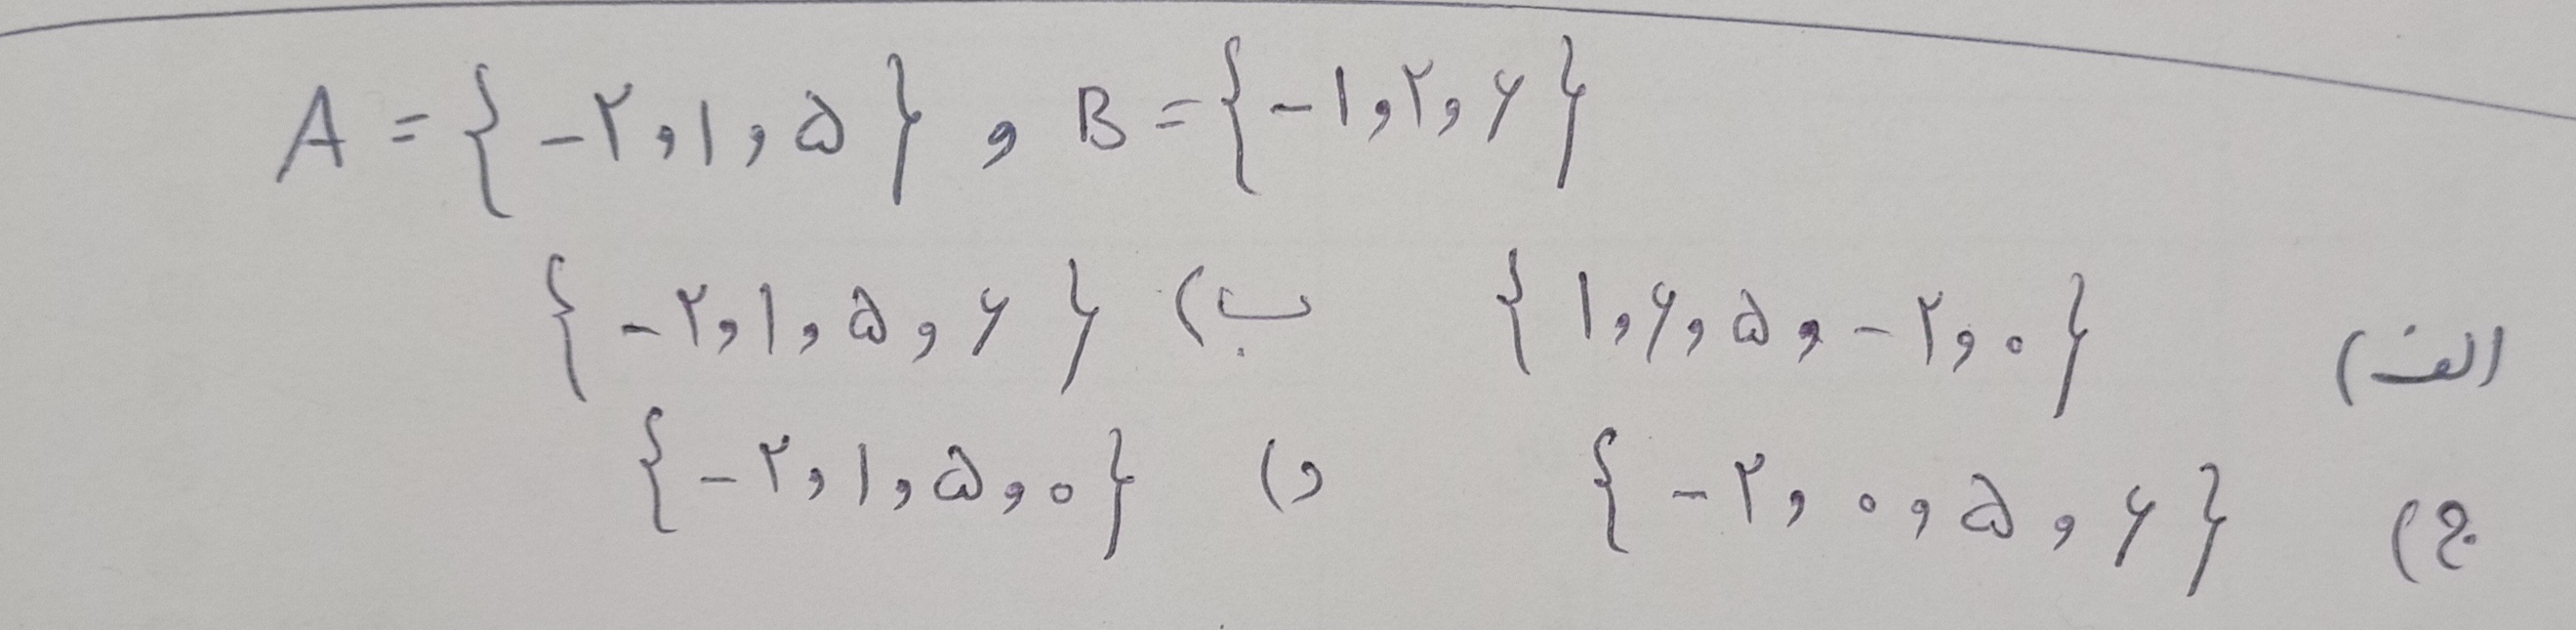 A = {-۲, ۱, ۵} , B = {-۱, ۲, ۶}
الف) {۱, ۶, ۵, -۲, ۰} ب) {-۲, ۱, ۵, ۶}
ج) {-۲, ۰, ۵, ۶} د) {-۲, ۱, ۵, ۰}